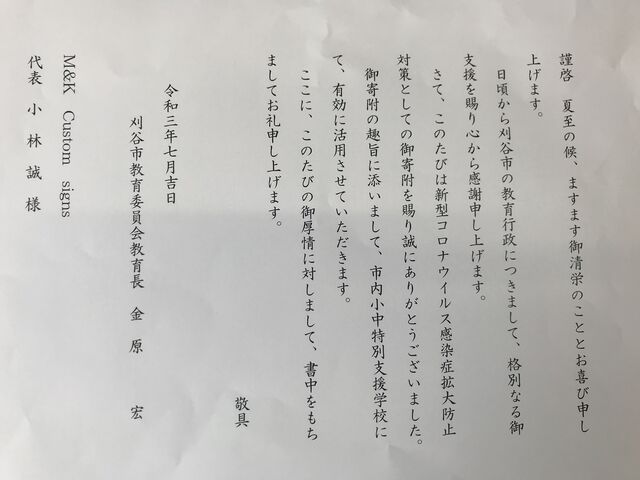 謹啓　夏至の候、ますます御清栄のこととお喜び申し
上げます。
日頃から刈谷市の教育行政につきまして、格別なる御
支援を賜り心から感謝申し上げます。
さて、このたびは新型コロナウイルス感染症拡大防止
対策としての御寄附を賜り誠にありがとうございました。
御寄附の趣旨に添いまして、市内小中特別支援学校に
て、有効に活用させていただきます。
ここに、このたびの御厚情に対しまして、書中をもち
ましてお礼申し上げます。
敬具
令和三年七月吉日
刈谷市教育委員会教育長　金　原　　宏
M&K　Custom　signs
代表　小　林　誠　様